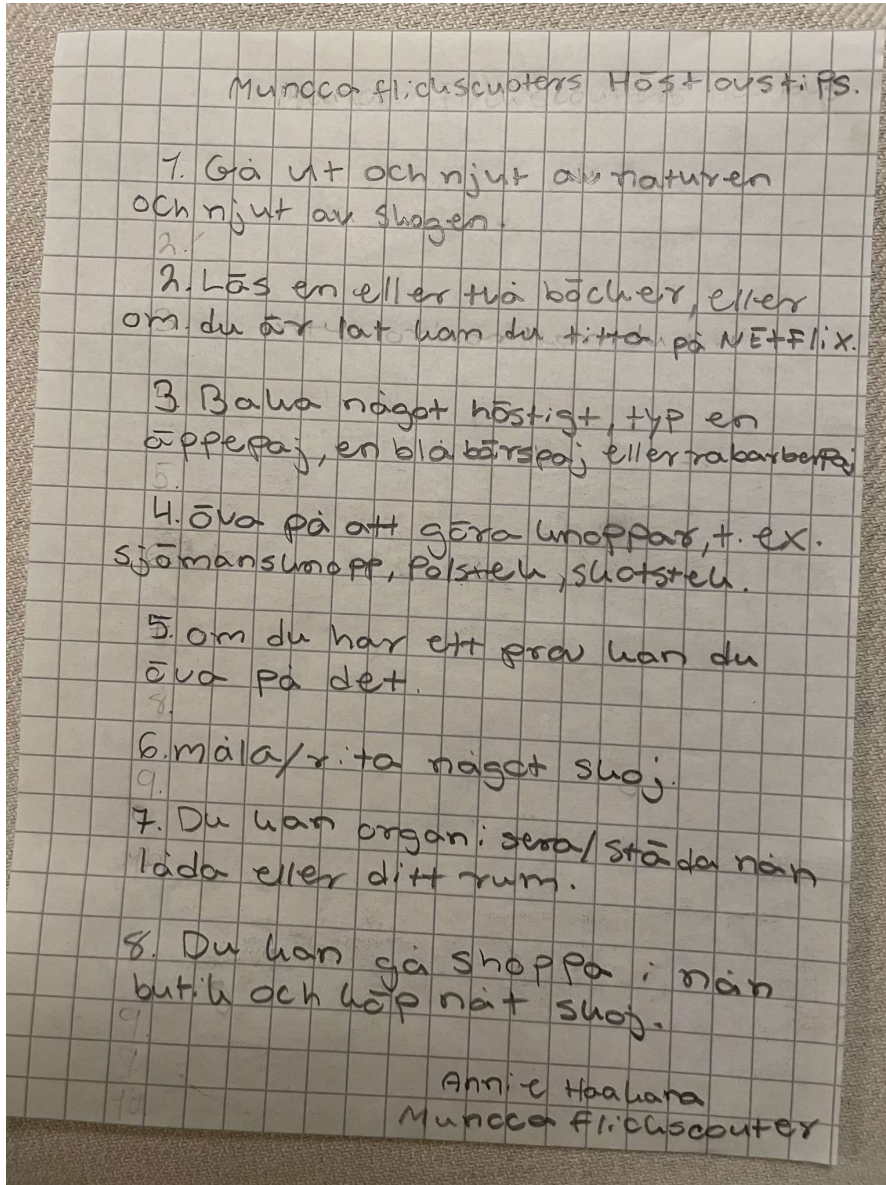 Muncca flickscupters Höstlovstips.
1. Gå ut och njut av naturen
och njut av skogen.
2.
2. Läs en eller två böcker, eller
om du är lat kan du titta på NEtFlix.
3. Baka något höstigt, typ en
äppepaj, en blåbärspaj eller rabarberpaj
5.
4. Öva på att göra knoppar, t. ex.
sjömansknopp, Pålstek, skotstek.
5. om du har ett prov kan du
öva på det.
8.
6. måla/rita något skoj.
9.
7. Du kan organisera/städa nån
låda eller ditt rum.
8. Du kan gå shoppa i nån
butik och köp nåt skoj.
9.
9.
10.
Annie Haakana
Muncca flickscouter